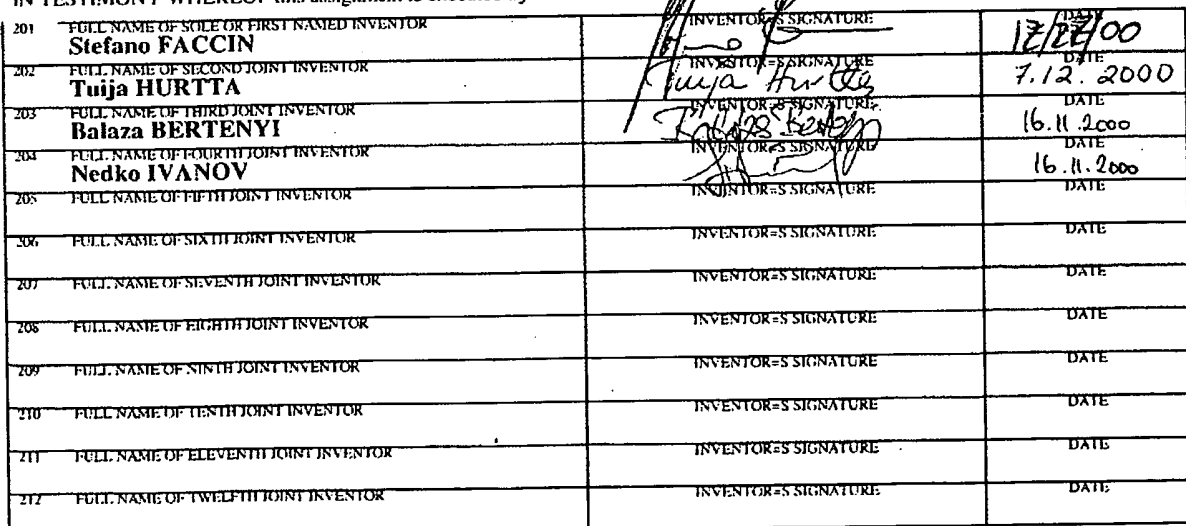 IN TESTIMONY WHEREOF this assignment is executed by
201 FULL NAME OF SOLE OR FIRST NAMED INVENTOR INVENTOR=S SIGNATURE DATE
Stefano FACCIN 12/22/00
202 FULL NAME OF SECOND JOINT INVENTOR INVENTOR=S SIGNATURE DATE
Tuija HURTTA Tuija Hurtta 7.12.2000
203 FULL NAME OF THIRD JOINT INVENTOR INVENTOR=S SIGNATURE DATE
Balaza BERTENYI 16.11.2000
204 FULL NAME OF FOURTH JOINT INVENTOR INVENTOR=S SIGNATURE DATE
Nedko IVANOV 16.11.2000
205 FULL NAME OF FIFTH JOINT INVENTOR INVENTOR=S SIGNATURE DATE
206 FULL NAME OF SIXTH JOINT INVENTOR INVENTOR=S SIGNATURE DATE
207 FULL NAME OF SEVENTH JOINT INVENTOR INVENTOR=S SIGNATURE DATE
208 FULL NAME OF EIGHTH JOINT INVENTOR INVENTOR=S SIGNATURE DATE
209 FULL NAME OF NINTH JOINT INVENTOR INVENTOR=S SIGNATURE DATE
210 FULL NAME OF TENTH JOINT INVENTOR INVENTOR=S SIGNATURE DATE
211 FULL NAME OF ELEVENTH JOINT INVENTOR INVENTOR=S SIGNATURE DATE
212 FULL NAME OF TWELFTH JOINT INVENTOR INVENTOR=S SIGNATURE DATE